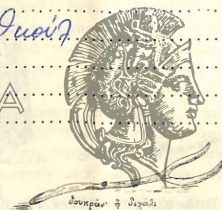 θκούλ
Α
δουκράν' ἢ διχάλι